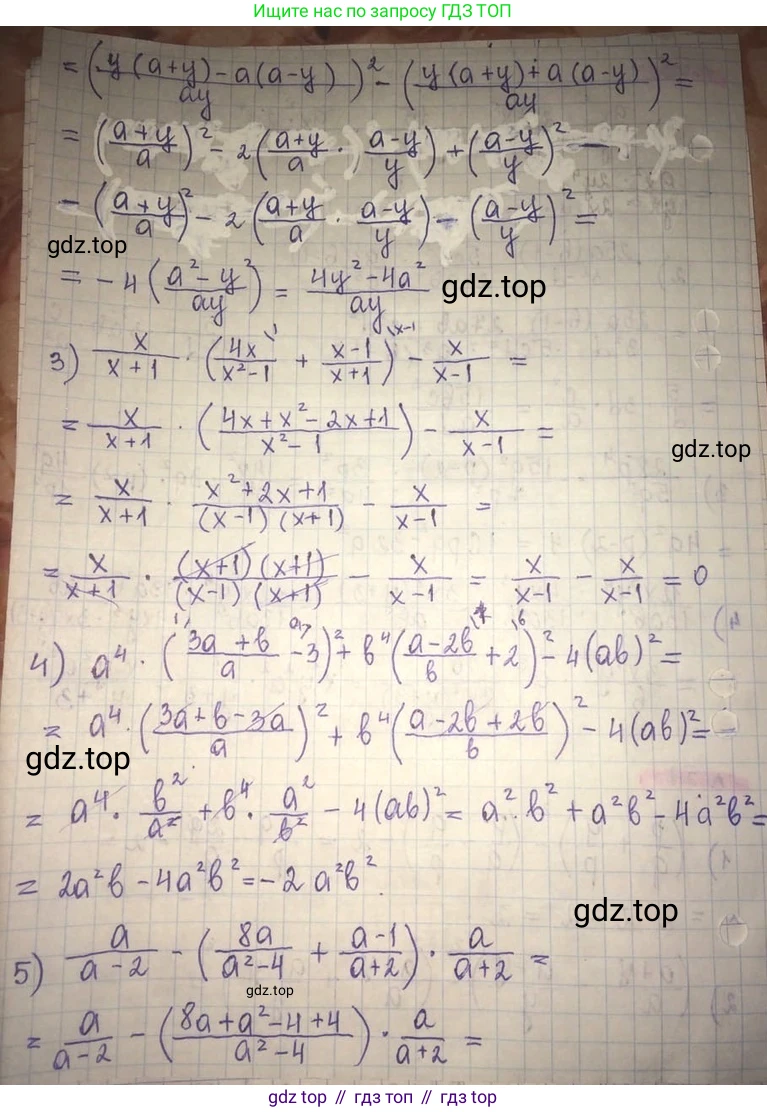 Ищите нас по запросу ГДЗ ТОП
= (y(a+y)-a(a-y) / ay)² - (y(a+y)+a(a-y) / ay)² =
= (a+y / a)² - 2(a+y / a · a-y / y) + (a-y / y)² -
- (a+y / a)² - 2(a+y / a · a-y / y) - (a-y / y)² =
gdz.top
= -4(a²-y² / ay) = 4y²-4a² / ay
gdz.top
3) x / x+1 · (4x / x²-1 + x-1 / x+1) - x / x-1 =
= x / x+1 · (4x+x²-2x+1 / x²-1) - x / x-1 =
gdz.top
= x / x+1 · x²+2x+1 / (x-1)(x+1) - x / x-1 =
= x / x+1 · (x+1)(x+1) / (x-1)(x+1) - x / x-1 = x / x-1 - x / x-1 = 0
4) a⁴ · (3a+b / a - 3)² + b⁴(a-2b / b + 2)² - 4(ab)² =
= a⁴ · (3a+b-3a / a)² + b⁴(a-2b+2b / b)² - 4(ab)² =
gdz.top
= a⁴ · b² / a² + b⁴ · a² / b² - 4(ab)² = a²b² + a²b² - 4a²b² =
= 2a²b - 4a²b² = -2a²b².
gdz.top
5) a / a-2 - (8a / a²-4 + a-1 / a+2) · a / a+2 =
gdz.top
= a / a-2 - (8a+a²-4+4 / a²-4) · a / a+2 =
gdz.top // гдз топ // gdz top